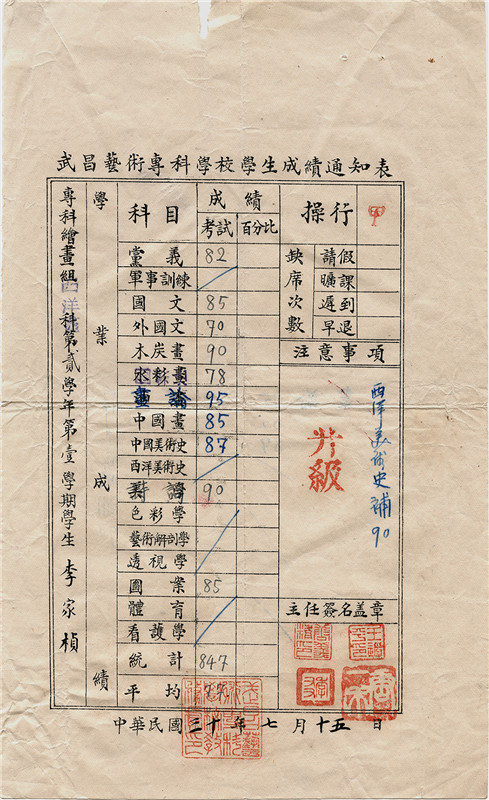 武昌藝術專科學校學生成績通知表
專科繪畫組 西洋 科第貳學年第壹學期學生 李家楨
學業成績
科目 成績
考試 百分比
黨義 82
軍事訓練
國文 85
外國文 70
木炭畫 90
水彩畫 78
畫論 95
中國畫 85
中國美術史 87
西洋美術史
90
色彩學
藝術解剖學
透視學
圖案 85
體育
看護學
統計 847
平均
操行 甲
缺席次數
請假
曠課
遲到
早退
注意事項
西洋美術史補90
升級
主任簽名盖章
中華民國三十年七月十五日